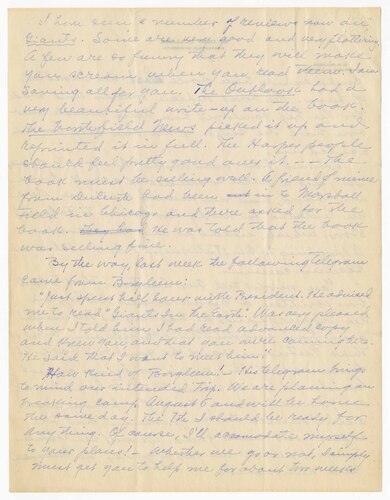 I have seen a number of reviews now on
Giants. Some are very good and very flattering
A few are so funny that they will make
you scream when you read them. I am
Saving all for you. The Outlook had a
very beautiful write-up on the book.
The Northfield News picked it up and
reprinted it in full. The Harper people
should feel pretty good over it. - - The
book must be selling well. A friend of mine
from Duluth had been in to Marshall
Field in Chicago and there asked for the
book. He was told that the book
was selling fine.
By the way, last week the following telegram
came from Boraleum:
"Just spent half hour with President. He advised
me to read "Giants In the Earth". Was very pleased
when I told him I had read advanced copy
and knew you and that you were
He said that I want to meet him."
How kind of Borgleum! - His telegram brings
to mind our intended trip. We are planning on
breaking camp August 6 and will be home
the same day. The 7th I should be ready for
anything. Of course, I'll accomodate myself
to your plans! - Whether we go or not, I simply
must get you to help me for about two weeks